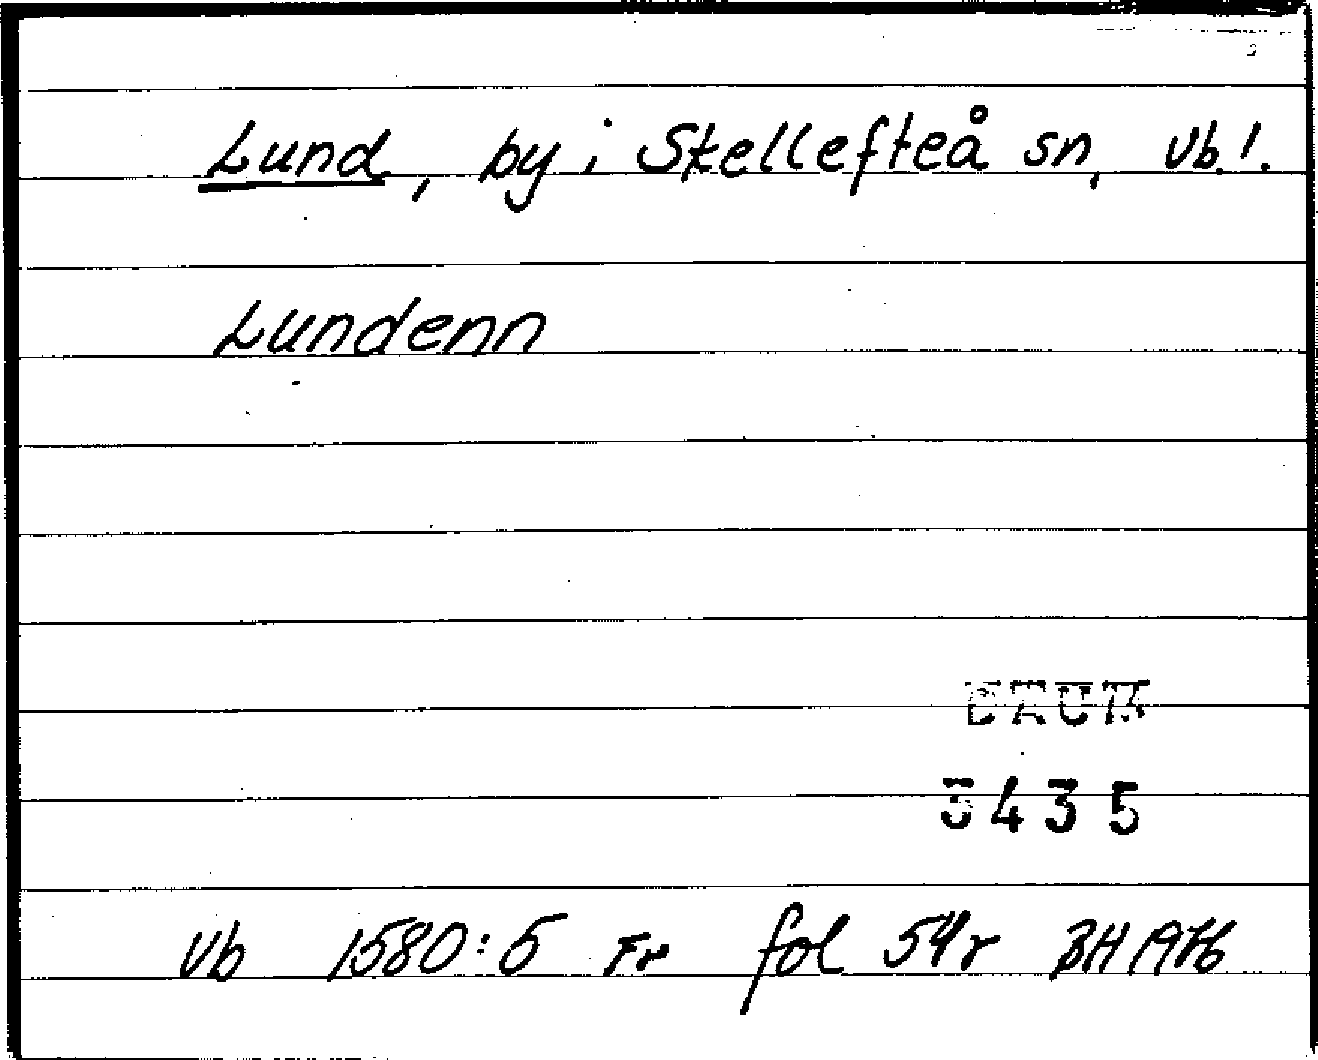 Lund, by i Skellefteå sn, Vb!.
Lundenn
DAUM
3435
Vb 1580:5 Fr fol 54r BH 1976